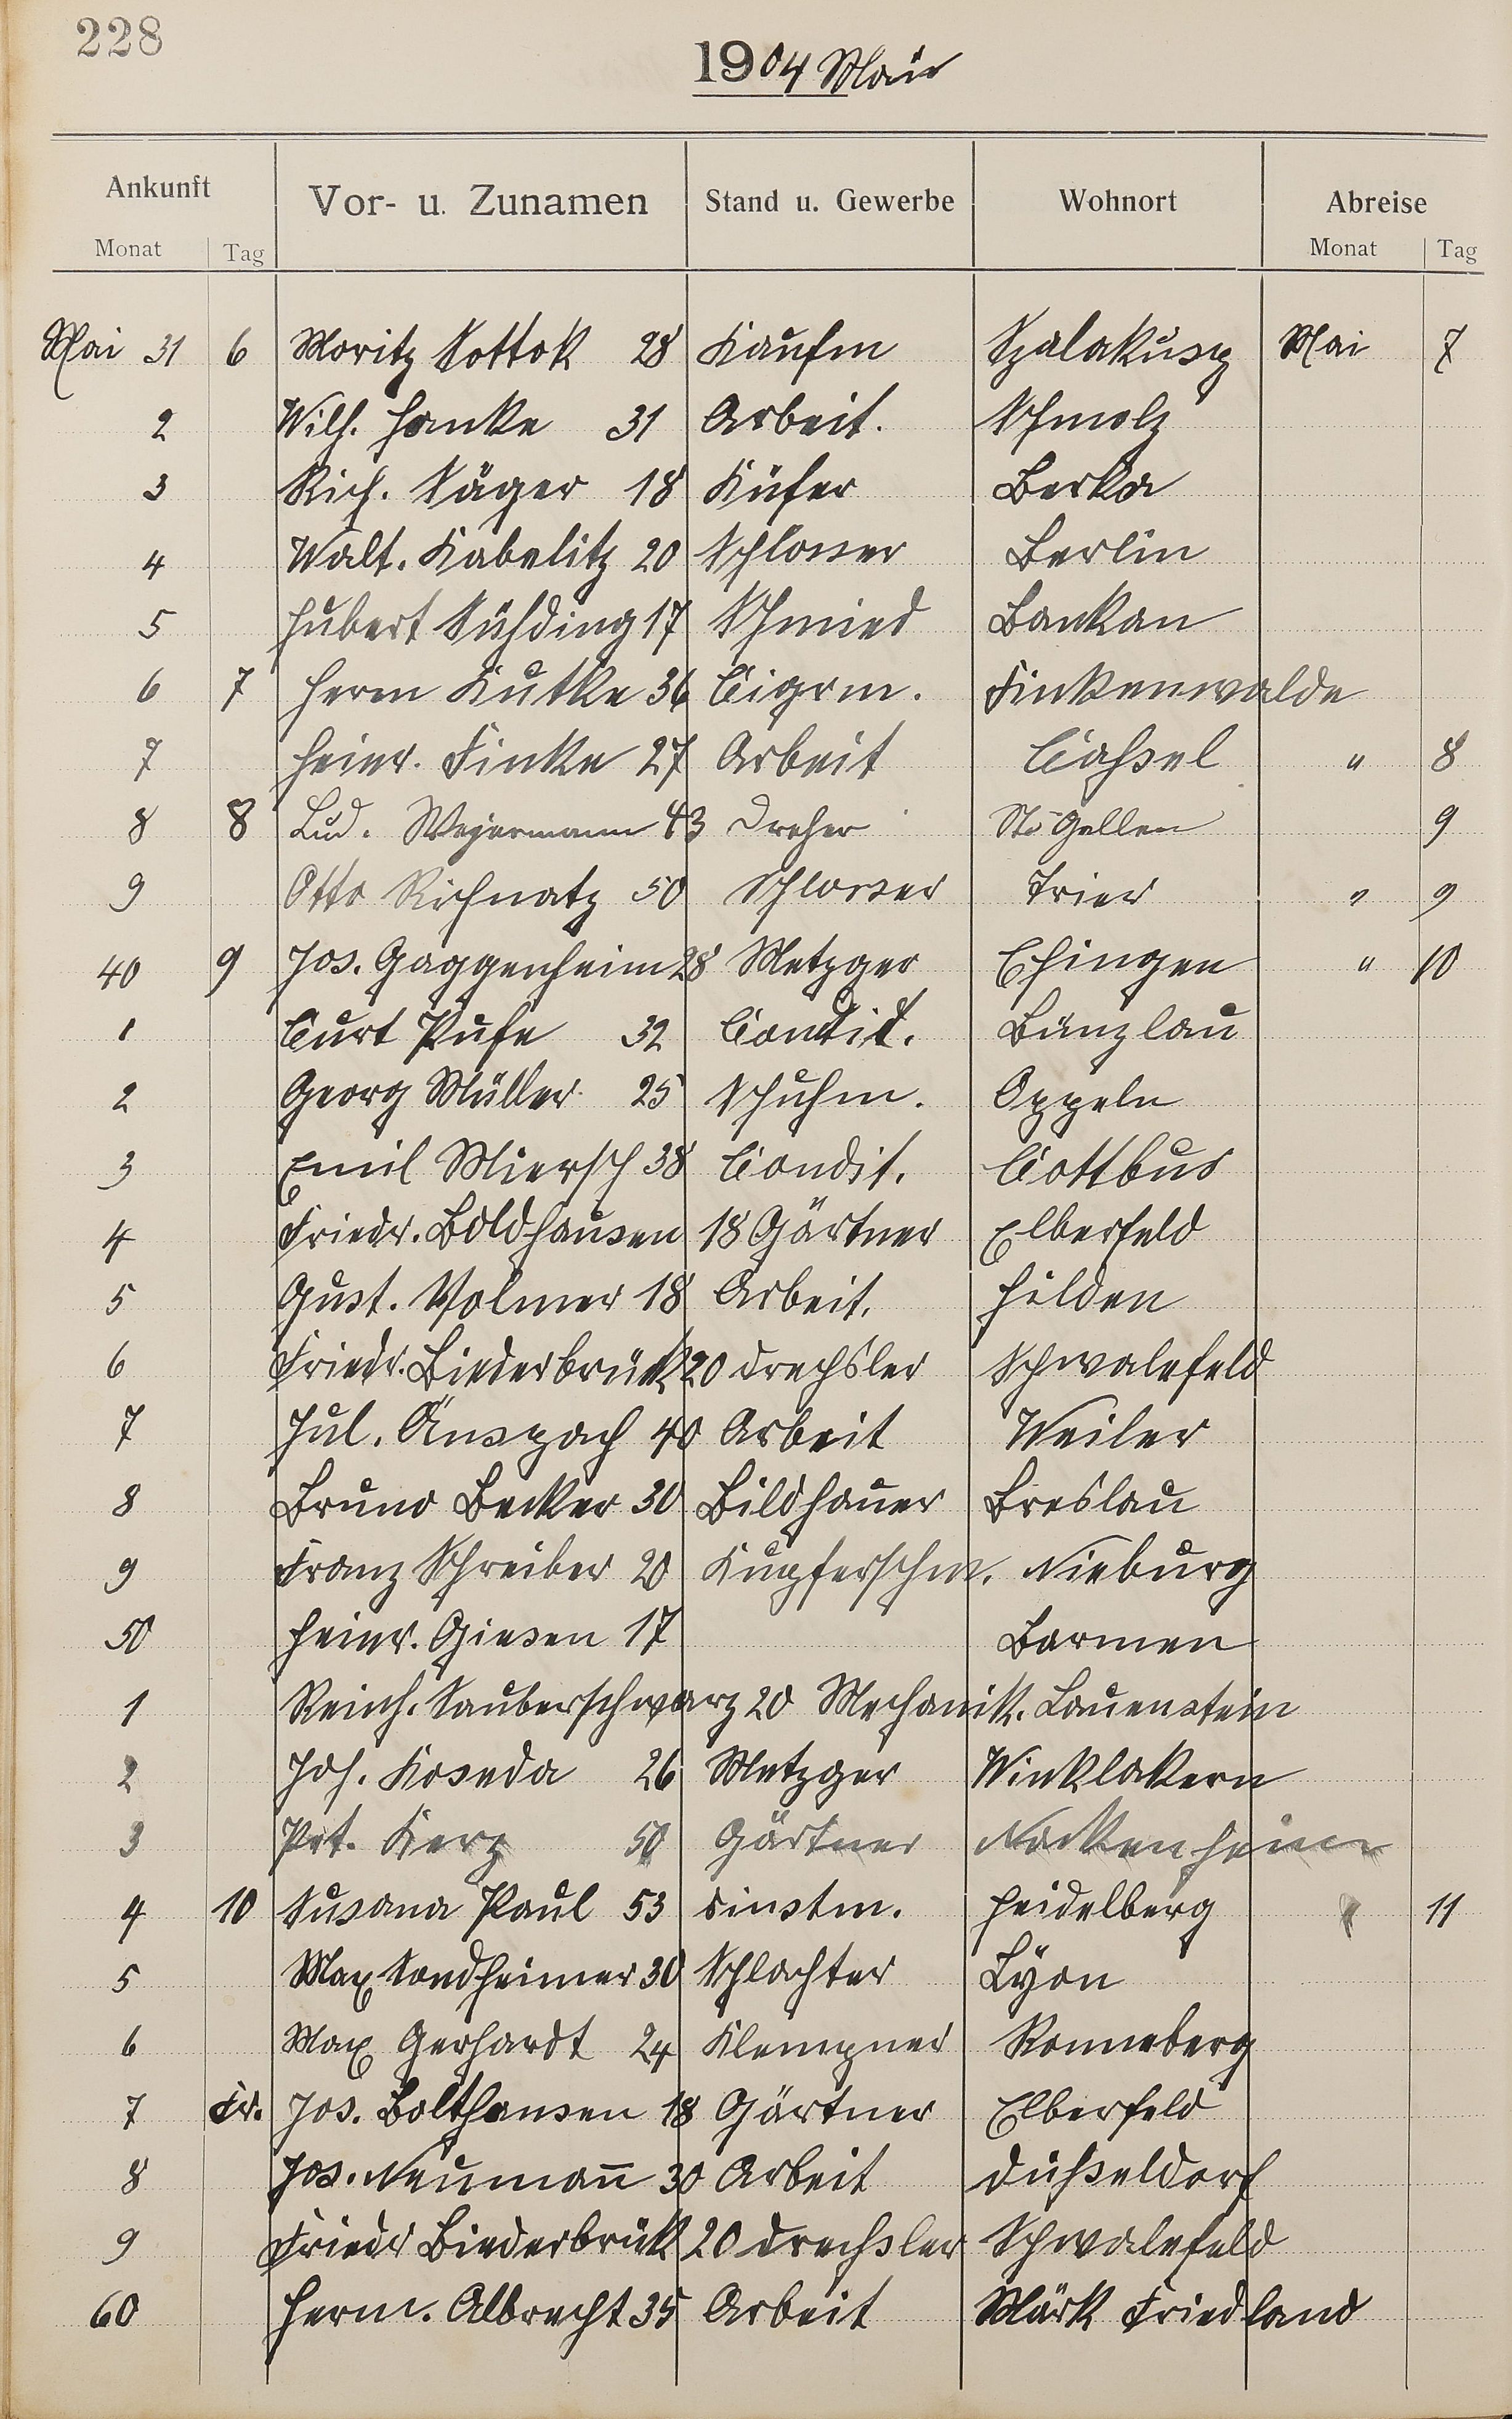 228
1904 Mai
Ankunft Vor- u. Zunamen Stand u. Gewerbe Wohnort Abreise
Monat Tag Monat Tag
Mai 31 6 Moritz Sottok 28 Kaufm Szalakusz Mai 7
2 Wilh. Hanke 31 Arbeit. Schmolz
3 Rich. Säger 18 Küfer Berka
4 Walt. Kabelitz 20 Schlosser Berlin
5 Hubert Sühding 17 Schmied Bankau
6 7 Herm Kutke 36 Cigrm. Finkenwalde
7 Heinr. Finke 27 Arbeit Caßsel " 8
8 8 Lud. Wejermann 43 Dreher St. Gallen 9
9 Otto Richnatz 50 Schlosser Trier " 9
40 9 Jos. Gaggenheim 28 Metzger Ehingen " 10
1 Curt Pufe 32 Condit. Bunzlau
2 Georg Müller 25 Schuhm. Oppeln
3 Emil Miersch 38 Condit. Cottbus
4 Friedr. Boldhausen 18 Gärtner Elberfeld
5 Gust. Volmer 18 Arbeit. Hilden
6 Friedr. Biederbrück 20 Drechsler Schwalefeld
7 Jul. Anspach 40 Arbeit Weiler
8 Bruno Becker 30 Bildhauer Breslau
9 Franz Schreiber 20 Kupferschm. Nieburg
50 Heinr. Giesen 17 Barmen
1 Reinh. Sauberschwarz 20 Mechanik. Lauenstein
2 Joh. Koseda 26 Metzger Winklakern
3 Pet. Kerz 50 Gärtner Nackenheim
4 10 Susana Paul 53 Dinstm. Heidelberg " 11
5 Max Sondheimer 30 Schlachter Lyon
6 Max Gerhardt 24 Klempner Ronneberg
7 Fr. Jos. Bolthausen 18 Gärtner Elberfeld
8 Jos. Neumañ 30 Arbeit Düßeldorf
9 Friedr Biederbrük 20 Drechsler Schwalefeld
60 Herm. Albrecht 35 Arbeit Märk Friedland